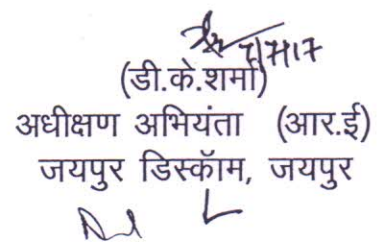 7/7/17
(डी.के.शर्मा)
अधीक्षण अभियंता (आर.ई)
जयपुर डिस्कॉम, जयपुर